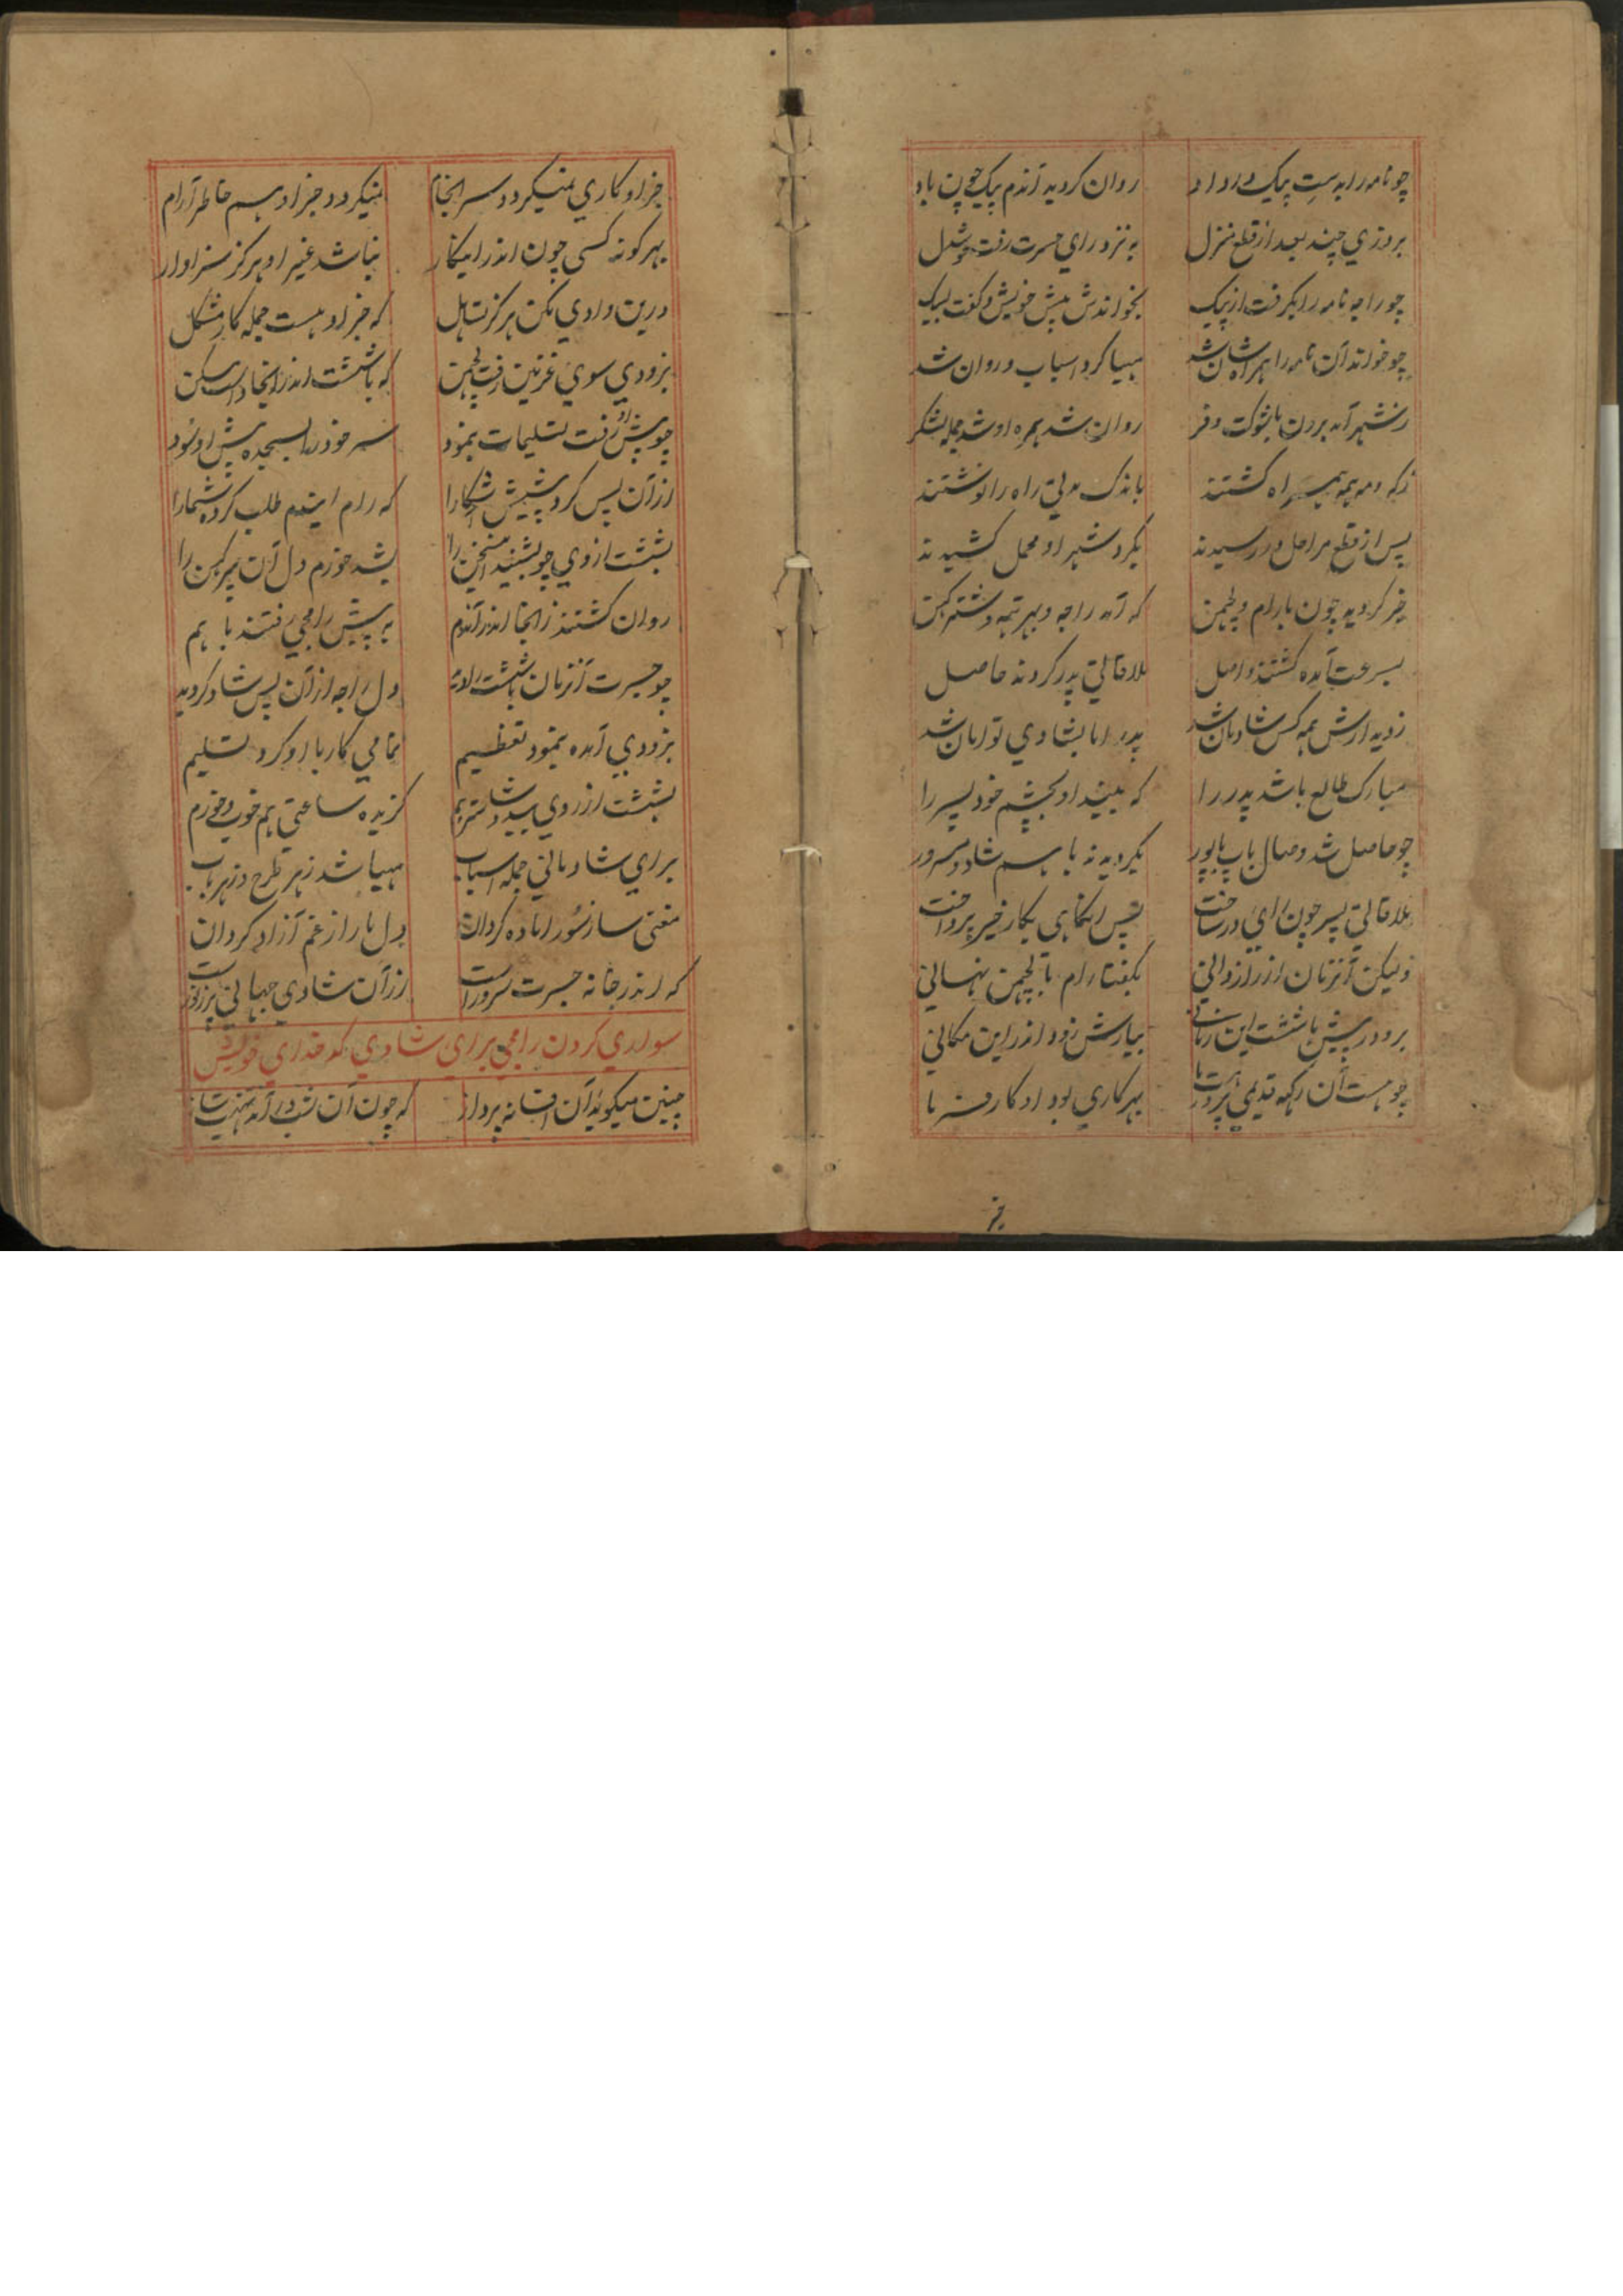 چو نامه را بدست پیک در داد روان گردید آندم پیک چون باد
بروزی چند بعد از قطع منزل به نزد رای جسرت رفت خوشدل
چو راجه نامه را بگرفت از پیک بخواندش پیش خویش و گفت لبیک
چو خواند آن نامه را همراه شان شد مهیا کرد اسباب و روان شد
ز شهر آمد برون با شوکت و فر روان شد همره او جمله لشکر
که و مه همه همراه گشتند باندک مدتی راه را نوشتند
پس از قطع مراحل در رسیدند بگرد شهر او محمل کشیدند
خبر گردید چون با رام و لچمن که آمد راجه و بهرته و شترگهن
بسرعت آمده گشتند واصل ملاقات پدر کردند حاصل
ز دیدارش همه کس شادمان شد پدر اما بشادی توامان شد
مبارک طالع باشد پدر را که بیند او بچشم خود پسر را
چو حاصل شد وصال باب با پور بگردیدند با هم شاد و مسرور
ملاقات پسر چون رای در ساخت پس آنگاهی بکار خیر پرداخت
ولیکن آنزمان از رازدانی بگفتا رام با لچمن نهانی
برو در پیش باششت این زمانی بیارش زود اندر این مکانی
چو هست آن رکهه قدیمی بهر کاری بود او کارفرما
جز او کاری نمیگردد سرانجام نمیگردد جز او هم خاطر آرام
بهرگونه کسی چون اندر اینکار نباشد غیر او هرگز سزاوار
درین وادی مکن هرگز تساهل که جز او هست جمله کار مشکل
بزودی سوی غزنین رفت لچمن که باششت اندر آنجا داشت مسکن
چو پیش او رفت تسلیمات بنمود سر خود را بسجده پیش او سود
از آن پس کرد پیشش آشکارا که رام ایندم طلب کرده شما را
بششت از وی چو بشنید این سخن را بشد خورم دل آن پیر کهن را
روان گشتند ز آنجا اندر آندم به پیش رامجی رفتند با هم
چو جسرت آنزمان باششت را دید دل راجه از آن پس شاد گردید
بزودی آمده بنمود تعظیم تمامی کار با او کرد تسلیم
بششت از روی بید و شاستر هم گزیده ساعتی هم خوب و خورم
برای شادمانی جمله اسباب مهیا شد ز هر طرح و ز هر باب
مغنی ساز سور آماده گردان دل ما را از غم آزاد گردان
که اندر خانه جسرت سرور است از آن شادی جهانی پر ز نور است
سواری کردن رامجی برای شادی کدخدای خویش
چنین میگوید آن افسانه پرداز که چون آن شب در آمد
جز